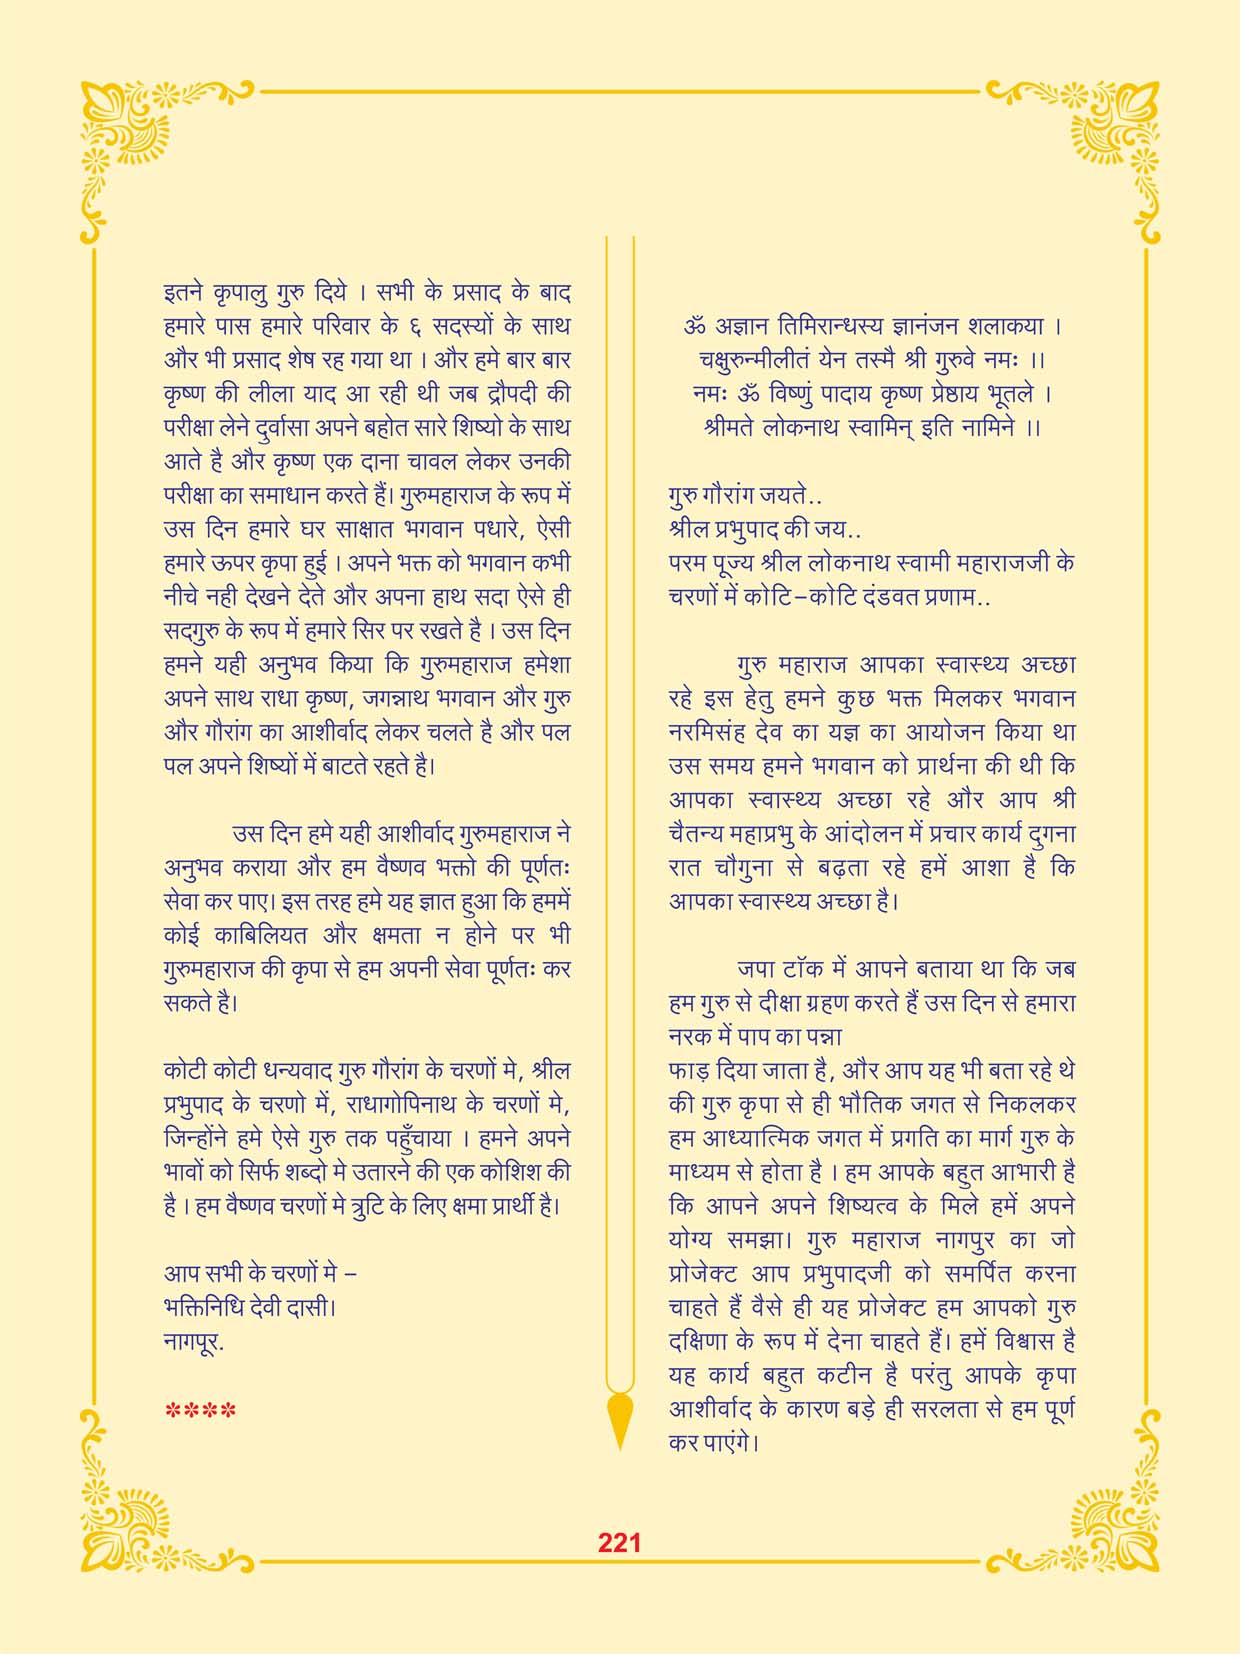 इतने कृपालु गुरु दिये । सभी के प्रसाद के बाद
हमारे पास हमारे परिवार के ६ सदस्यों के साथ
और भी प्रसाद शेष रह गया था । और हमे बार बार
कृष्ण की लीला याद आ रही थी जब द्रौपदी की
परीक्षा लेने दुर्वासा अपने बहोत सारे शिष्यो के साथ
आते है और कृष्ण एक दाना चावल लेकर उनकी
परीक्षा का समाधान करते हैं। गुरुमहाराज के रूप में
उस दिन हमारे घर साक्षात भगवान पधारे, ऐसी
हमारे ऊपर कृपा हुई । अपने भक्त को भगवान कभी
नीचे नही देखने देते और अपना हाथ सदा ऐसे ही
सदगुरु के रूप में हमारे सिर पर रखते है । उस दिन
हमने यही अनुभव किया कि गुरुमहाराज हमेशा
अपने साथ राधा कृष्ण, जगन्नाथ भगवान और गुरु
और गौरांग का आशीर्वाद लेकर चलते है और पल
पल अपने शिष्यों में बाटते रहते है।
उस दिन हमे यही आशीर्वाद गुरुमहाराज ने
अनुभव कराया और हम वैष्णव भक्तो की पूर्णतः
सेवा कर पाए। इस तरह हमे यह ज्ञात हुआ कि हममें
कोई काबिलियत और क्षमता न होने पर भी
गुरुमहाराज की कृपा से हम अपनी सेवा पूर्णतः कर
सकते है।
कोटी कोटी धन्यवाद गुरु गौरांग के चरणों मे, श्रील
प्रभुपाद के चरणो में, राधागोपिनाथ के चरणों मे,
जिन्होंने हमे ऐसे गुरु तक पहुँचाया । हमने अपने
भावों को सिर्फ शब्दो मे उतारने की एक कोशिश की
है । हम वैष्णव चरणों मे त्रुटि के लिए क्षमा प्रार्थी है।
आप सभी के चरणों मे –
भक्तिनिधि देवी दासी।
नागपूर.
****
ॐ अज्ञान तिमिरान्धस्य ज्ञानंजन शलाकया ।
चक्षुरुन्मीलीतं येन तस्मै श्री गुरुवे नमः ।।
नमः ॐ विष्णुं पादाय कृष्ण प्रेष्ठाय भूतले ।
श्रीमते लोकनाथ स्वामिन् इति नामिने ।।
गुरु गौरांग जयते..
श्रील प्रभुपाद की जय..
परम पूज्य श्रील लोकनाथ स्वामी महाराजजी के
चरणों में कोटि–कोटि दंडवत प्रणाम..
गुरु महाराज आपका स्वास्थ्य अच्छा
रहे इस हेतु हमने कुछ भक्त मिलकर भगवान
नरमिसंह देव का यज्ञ का आयोजन किया था
उस समय हमने भगवान को प्रार्थना की थी कि
आपका स्वास्थ्य अच्छा रहे और आप श्री
चैतन्य महाप्रभु के आंदोलन में प्रचार कार्य दुगना
रात चौगुना से बढ़ता रहे हमें आशा है कि
आपका स्वास्थ्य अच्छा है।
जपा टॉक में आपने बताया था कि जब
हम गुरु से दीक्षा ग्रहण करते हैं उस दिन से हमारा
नरक में पाप का पन्ना
फाड़ दिया जाता है, और आप यह भी बता रहे थे
की गुरु कृपा से ही भौतिक जगत से निकलकर
हम आध्यात्मिक जगत में प्रगति का मार्ग गुरु के
माध्यम से होता है । हम आपके बहुत आभारी है
कि आपने अपने शिष्यत्व के मिले हमें अपने
योग्य समझा। गुरु महाराज नागपुर का जो
प्रोजेक्ट आप प्रभुपादजी को समर्पित करना
चाहते हैं वैसे ही यह प्रोजेक्ट हम आपको गुरु
दक्षिणा के रूप में देना चाहते हैं। हमें विश्वास है
यह कार्य बहुत कटीन है परंतु आपके कृपा
आशीर्वाद के कारण बड़े ही सरलता से हम पूर्ण
कर पाएंगे।
221